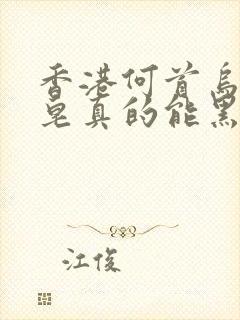 香港何首乌
皂真的能黑
江俊